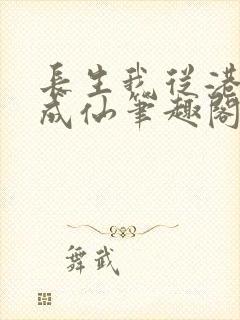 長生我從港
成仙筆趣閣
舞武